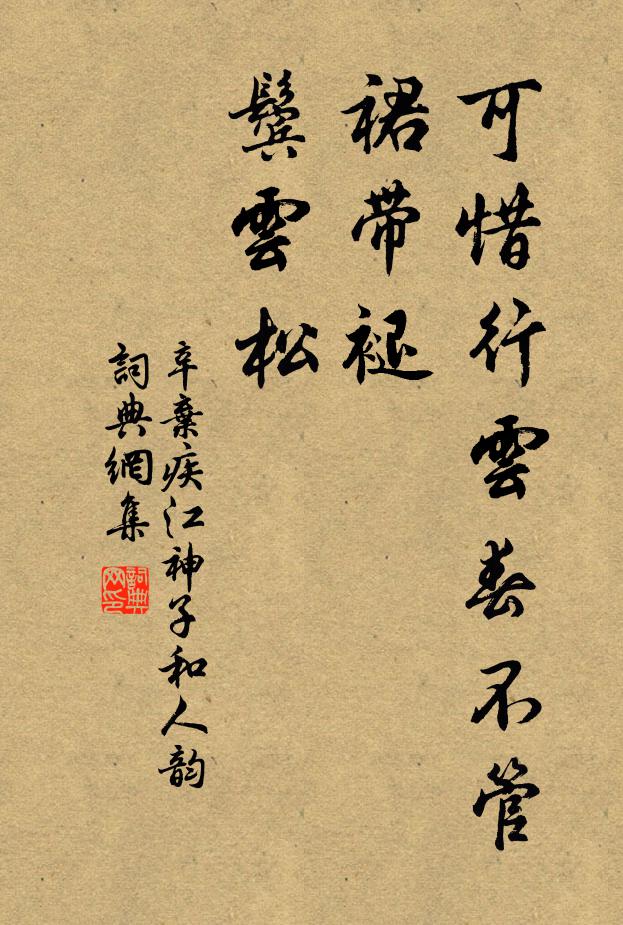 可惜行雲春不管
裙帶褪
鬢雲松
辛棄疾江神子和人韵
詞典網集
詞典网印